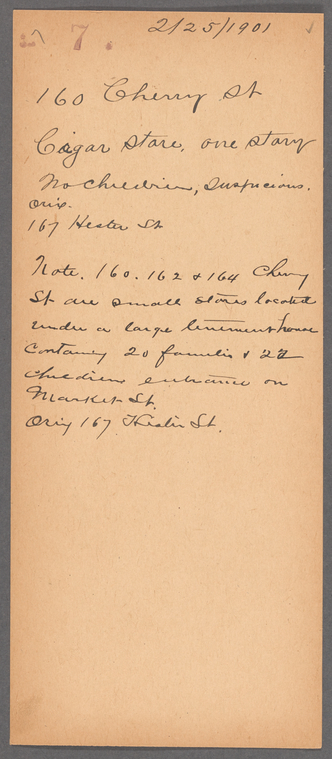 7. 2/25/1901
160 Cherry St
Cigar store, one story
No children, suspicious.
Orig.
167 Hester St
Note. 160. 162 & 164 Cherry
St are small stores located
under a large tenement house
containing 20 families & 22
childrens entrance on
Market St.
Orig 167 Hester St.